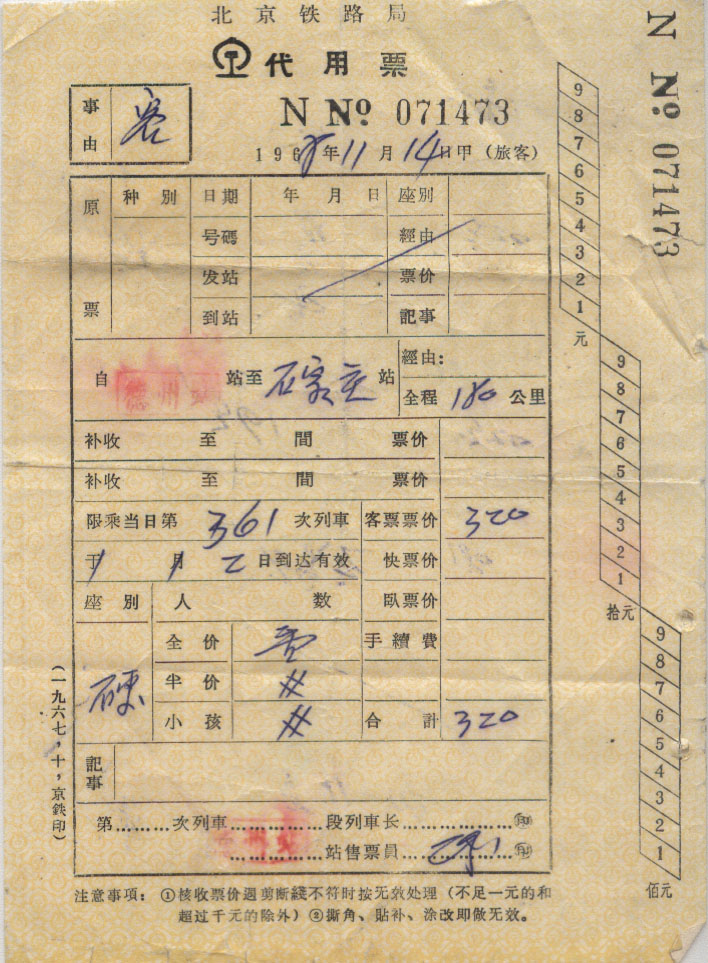 北京铁路局
代用票
N № 071473
N № 071473
事由 客
196 年11月14日甲(旅客)
原票 种别 日期 年 月 日 座别
号碼 經由
发站 票价
到站 記事
自 德州 站至 石家庄 站 經由:
全程 180 公里
补收 至 間 票价
补收 至 間 票价
限乘当日第 361 次列車 客票票价 320
于 月 2 日到达有效 快票价
座别 人数 臥票价
硬 全价 壹 手續費
半价 #
小孩 # 合計 320
記事
第………次列車…………段列車长……………印
…………站售票員……………印
注意事項:①核收票价遇剪断綫不符时按无效处理(不足一元的和
超过千元的除外)②撕角、貼补、涂改即做无效。
(一九六七,十,京鉄印)
9
8
7
6
5
4
3
2
1
元
9
8
7
6
5
4
3
2
1
拾元
9
8
7
6
5
4
3
2
1
佰元